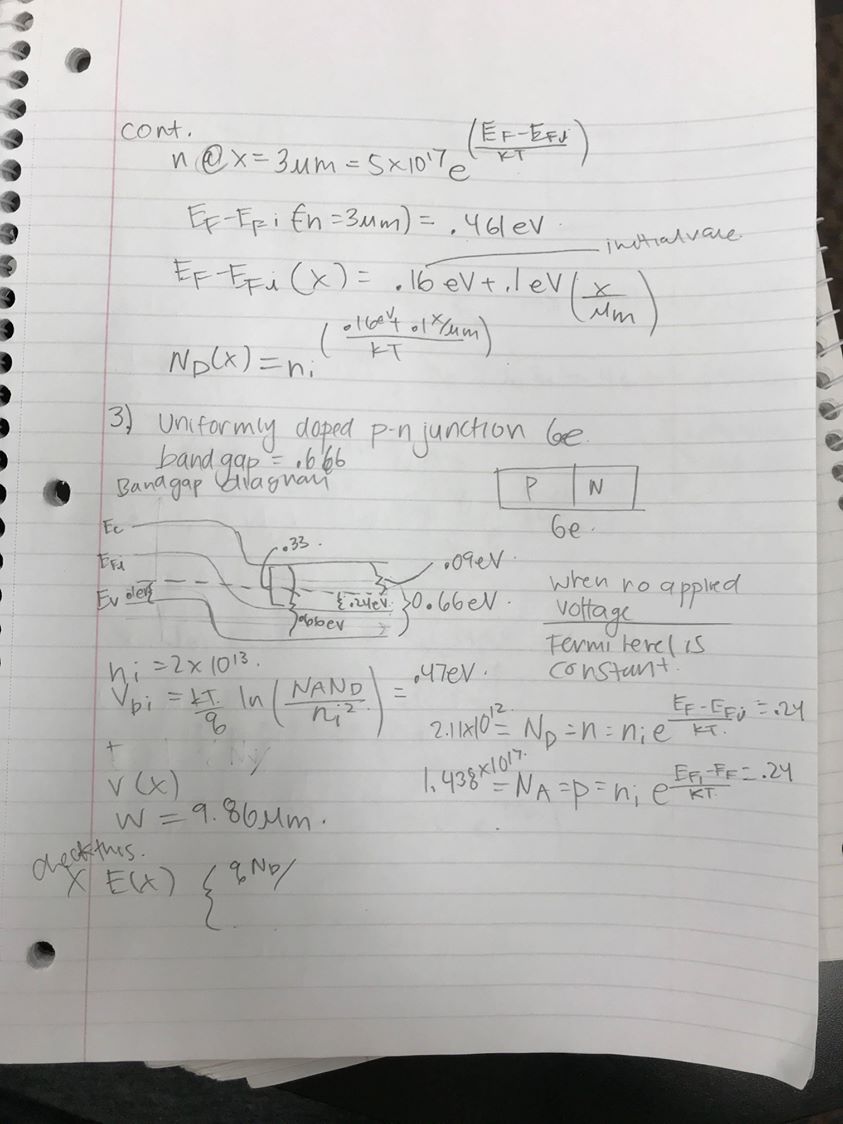 cont.
n @ x = 3μm = 5×10^17 e^((EF-EFi)/KT)
EF-EFi (n=3μm) = .461eV.
initial
EF-EFi (x) = .16 eV + .1 eV (x/μm)
ND(x) = ni^((.16eV + .1x/μm)/KT)
3) Uniformly doped p-n junction Ge.
band gap = .666
Bandgap diagram
P N
Ge.
Ec
.33.
.09eV.
EFi
Ev .24eV. 0.66eV.
.66eV
when no applied
voltage
Fermi level is
constant.
ni = 2×10^13.
Vbi = kT/q ln(NAND/ni^2) = .47eV.
2.11×10^12 = ND = n = ni e^((EF-EFi)/KT) = .24
+
V(x)
1.438×10^17 = NA = p = ni e^((EFi-EF)/KT) = .24
W = 9.86μm.
check this.
X E(x) { qND/